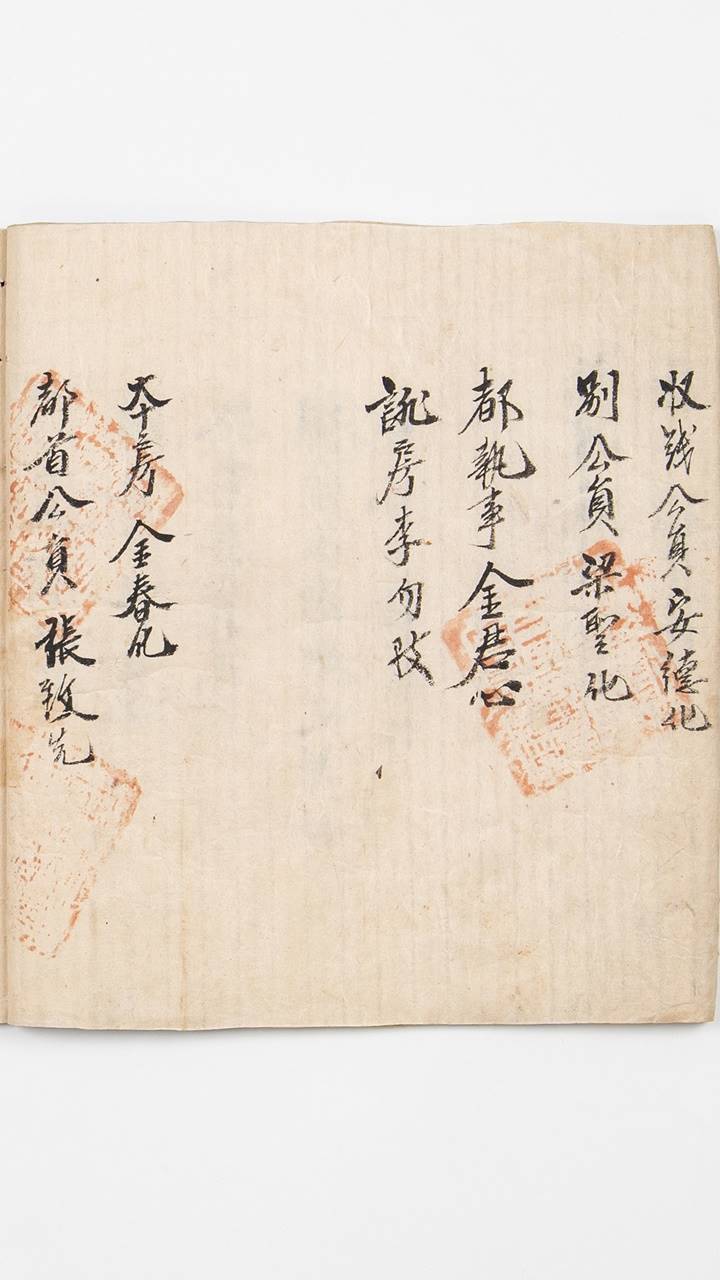 收錢公員安德化
別公員梁聖化
都執事金君心
訛房李勿致
本房 金春凡
都首公員張致先